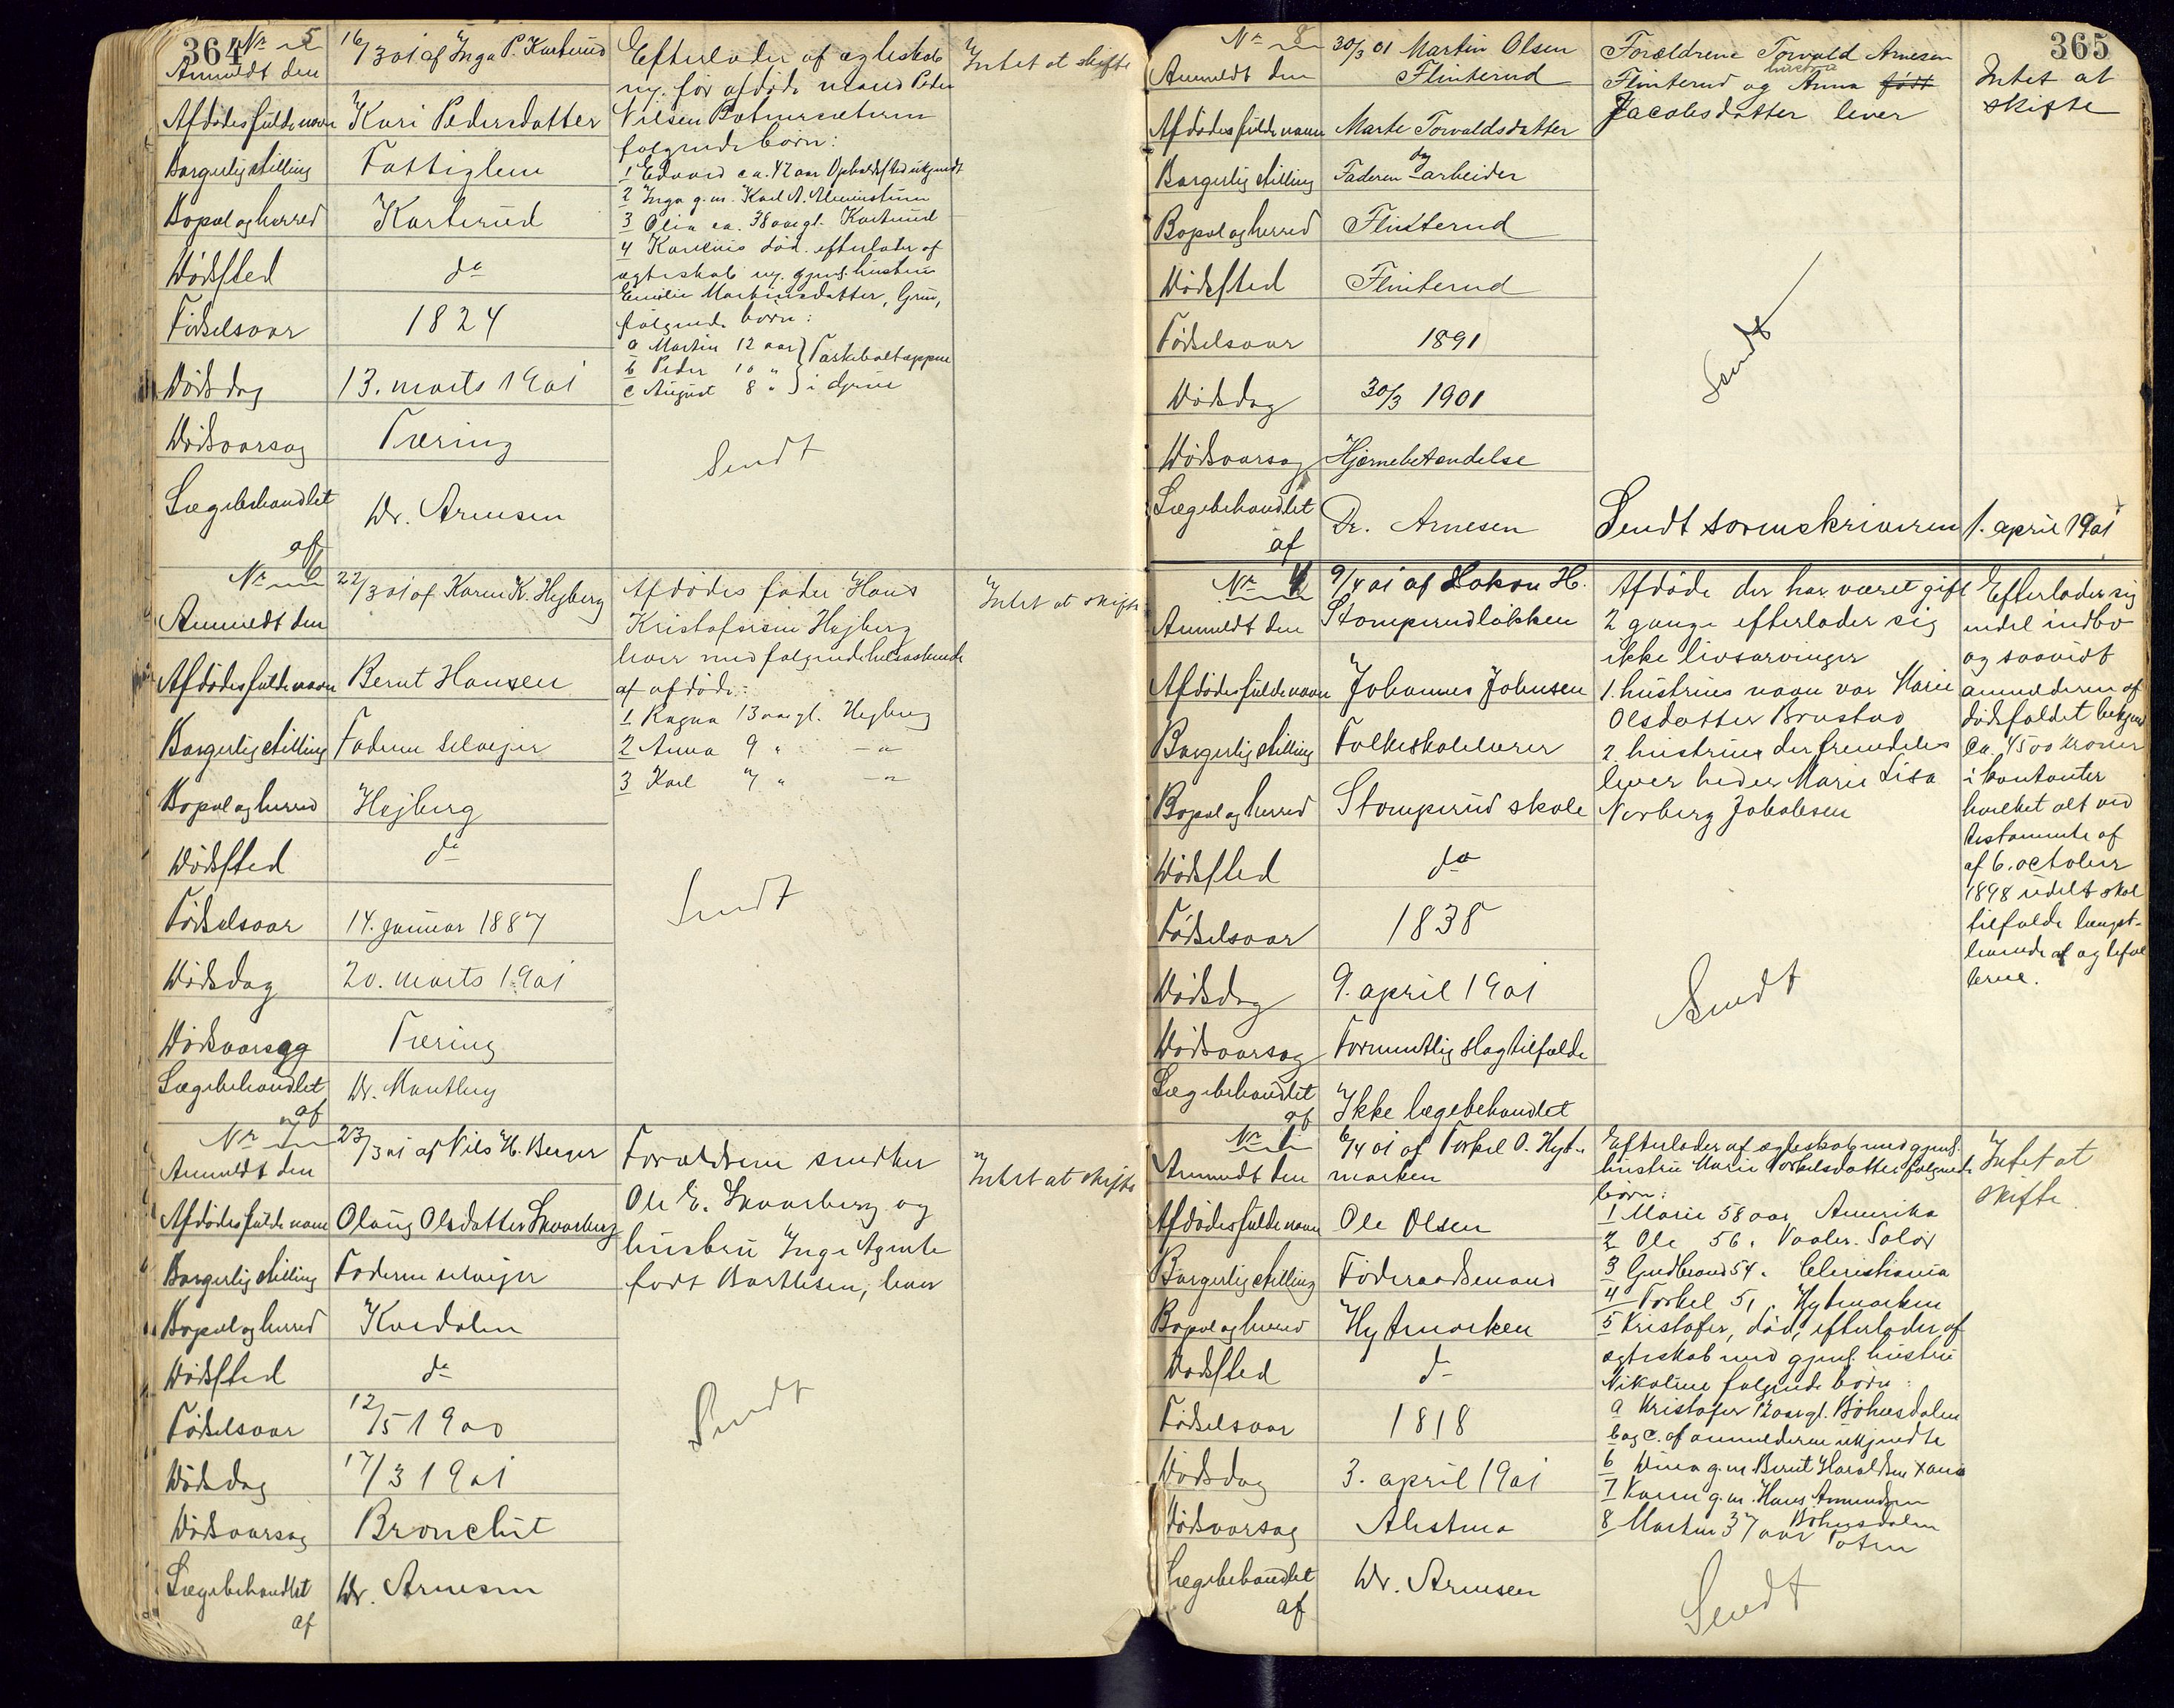 364
No 5
Anmeldt den
16/3 01 af Inga P. Karterud
Afdødes fulde navn
Kari Pedersdatter
Borgerlig stilling
Fattiglem
Bopæl og herred
Karterud
Dødssted
do
Fødselsaar
1824
Dødsdag
13. marts 1901
Dødsaarsag
Tæring
Lægebehandlet af
Dr. Arnesen
Efterlader af egteskab
m. før afdøde mand Peder
Nilsen
følgende børn:
1 Edvard ca. 42 aar Opholdssted ukjendt
2 Inga g.m. Karl A.
3 Olia ca. 38 aar gl. Karterud
4 Karenius død. efterlader af
egteskab m. gjenl. hustru
Emilie Martinsdatter, Grue,
følgende børn:
a Martin 12 aar
b Peder 10 "
c August 8 "
i Grue
Sendt
Intet at skifte
No 6
Anmeldt den
22/3 01 af Karen K. Hejberg
Afdødes fulde navn
Bernt Hansen
Borgerlig stilling
Faderen selveier
Bopæl og herred
Hejberg
Dødssted
do
Fødselsaar
14. januar 1887
Dødsdag
20. marts 1901
Dødsaarsag
Tæring
Lægebehandlet af
Dr. Manthey
Afdødes fader Hans
Kristofersen Hejberg
lever med følgende helsøskende
af afdøde:
1 Ragna 13 aar gl. Hejberg
2 Anna 9 " — " —
3 Karl 7 " — " —
Sendt
Intet at skifte
No 7
Anmeldt den
23/3 01 af Nils H. Berger
Afdødes fulde navn
Olaug Olsdatter Skvarberg
Borgerlig stilling
Faderen selveier
Bopæl og herred
Kordalen
Dødssted
do
Fødselsaar
12/5 1900
Dødsdag
17/3 1901
Dødsaarsag
Bronchit
Lægebehandlet af
Dr. Arnesen
Forældrene snedker
Ole E. Skvarberg og
hustru Inge Agnete
født Barthsen, lever
Sendt
Intet at skifte
365
No 8
Anmeldt den
30/3 01 Martin Olsen
Flinterud
Afdødes fulde navn
Marte Torvaldsdatter
Borgerlig stilling
Faderen dagarbeider
Bopæl og herred
Flinterud
Dødssted
Flinterud
Fødselsaar
1891
Dødsdag
30/3 1901
Dødsaarsag
Hjernebetændelse
Lægebehandlet af
Dr. Arnesen
Forældrene Torvald Arnesen
Flinterud og hustru Anna født
Jacobsdatter lever
Sendt
Sendt sorenskriveren 1. april 1901
Intet at
skifte
No
Anmeldt den
9/4 01 af Hakon H.
Stomperudløkken
Afdødes fulde navn
Johannes Johnsen
Borgerlig stilling
Folkeskolelærer
Bopæl og herred
Stomperud skole
Dødssted
do
Fødselsaar
1838
Dødsdag
9. april 1901
Dødsaarsag
Formentlig slagtilfælde
Lægebehandlet af
Ikke lægebehandlet
Afdøde der har været gift
2 gange efterlader sig
ikke livsarvinger
1. hustrues navn var Marie
Olsdatter Brustad
2. hustrue der fremdeles
lever heder Marie Lisa
Norberg Jakobsen
Sendt
Efterlader sig
endel indbo
og saavidt
anmelderen af
dødsfaldet bekjend
Ca. 4500 kroner
i kontanter
hvilket alt ved
testamente af
af 6. october
1898 udelt skal
tilfalde længst-
levende af ægtefæl
lerne.
No
Anmeldt den
6/4 01 af Torkel O. Hyt-
marken
Afdødes fulde navn
Ole Olsen
Borgerlig stilling
Føderaadsmand
Bopæl og herred
Hytmarken
Dødssted
do
Fødselsaar
1818
Dødsdag
3. april 1901
Dødsaarsag
Alestma
Lægebehandlet af
Dr. Arnesen
Efterlader af egteskab med gjenl.
hustru Marie Torkelsdatter følgende
børn:
1 Marie 58 aar Amerika
2 Ole 56 " Vaaler. Solør
3 Gudbrand 54 " Christiania
4 Torkel 51 Hytmarken
5 Kristofer, død, efterlader af
egteskab med gjenl. hustru
Nikoline følgende børn:
a Kristofer 12 aar gl. Bøhnsdalen
b og c. af anmelderen ukjendte
6 Dina g.m. Bernt Haraldsen
7 Karen g.m. Hans Amundsen
Bøhnsdalen
8 Martin 37 aar Toten
Sendt
Intet at
skifte